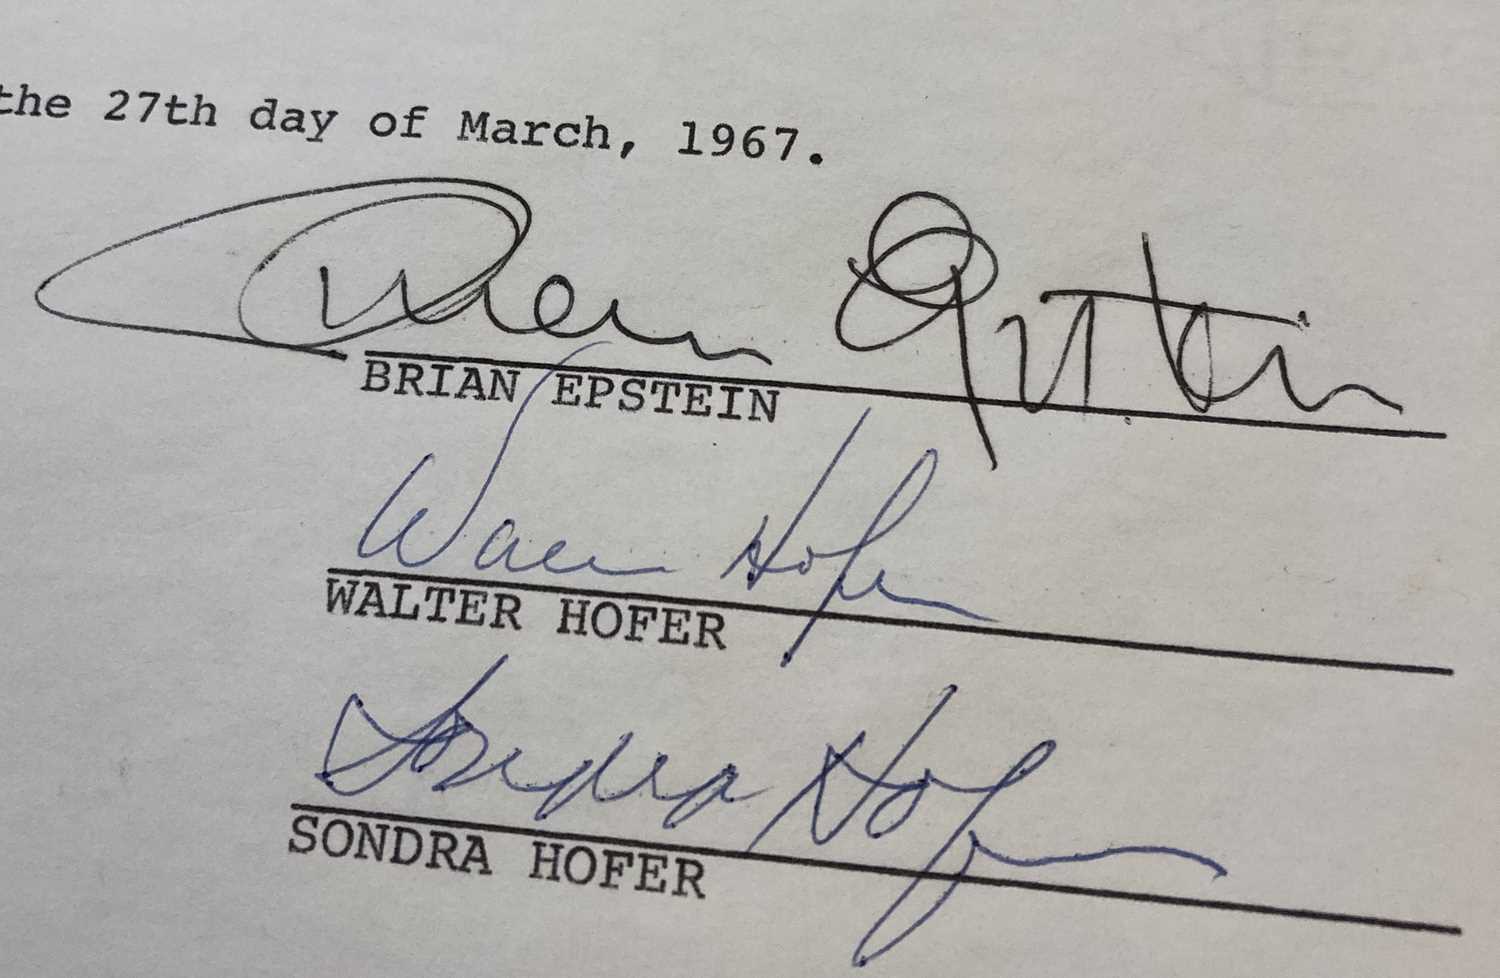 the 27th day of March, 1967.
Brian Epstein
BRIAN EPSTEIN
Walter Hofer
WALTER HOFER
Sondra Hofer
SONDRA HOFER